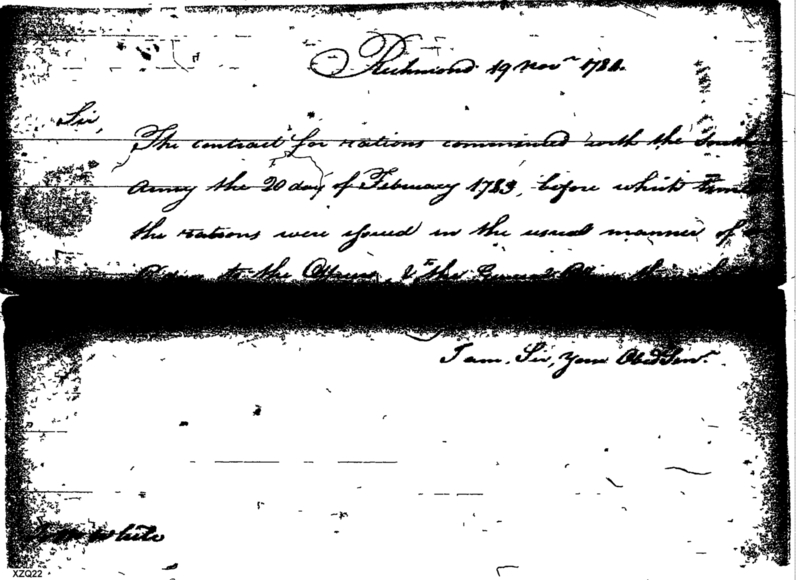 Richmond 19 Novr 1784.
Sir,
The contract for rations commenced with the South
Army the 20 day of February 1783, before which time
the rations were issued in the usual manner of
to the Officers, & to the General Officers
I am, Sir, Your Obed Servt.
White
XZQ22